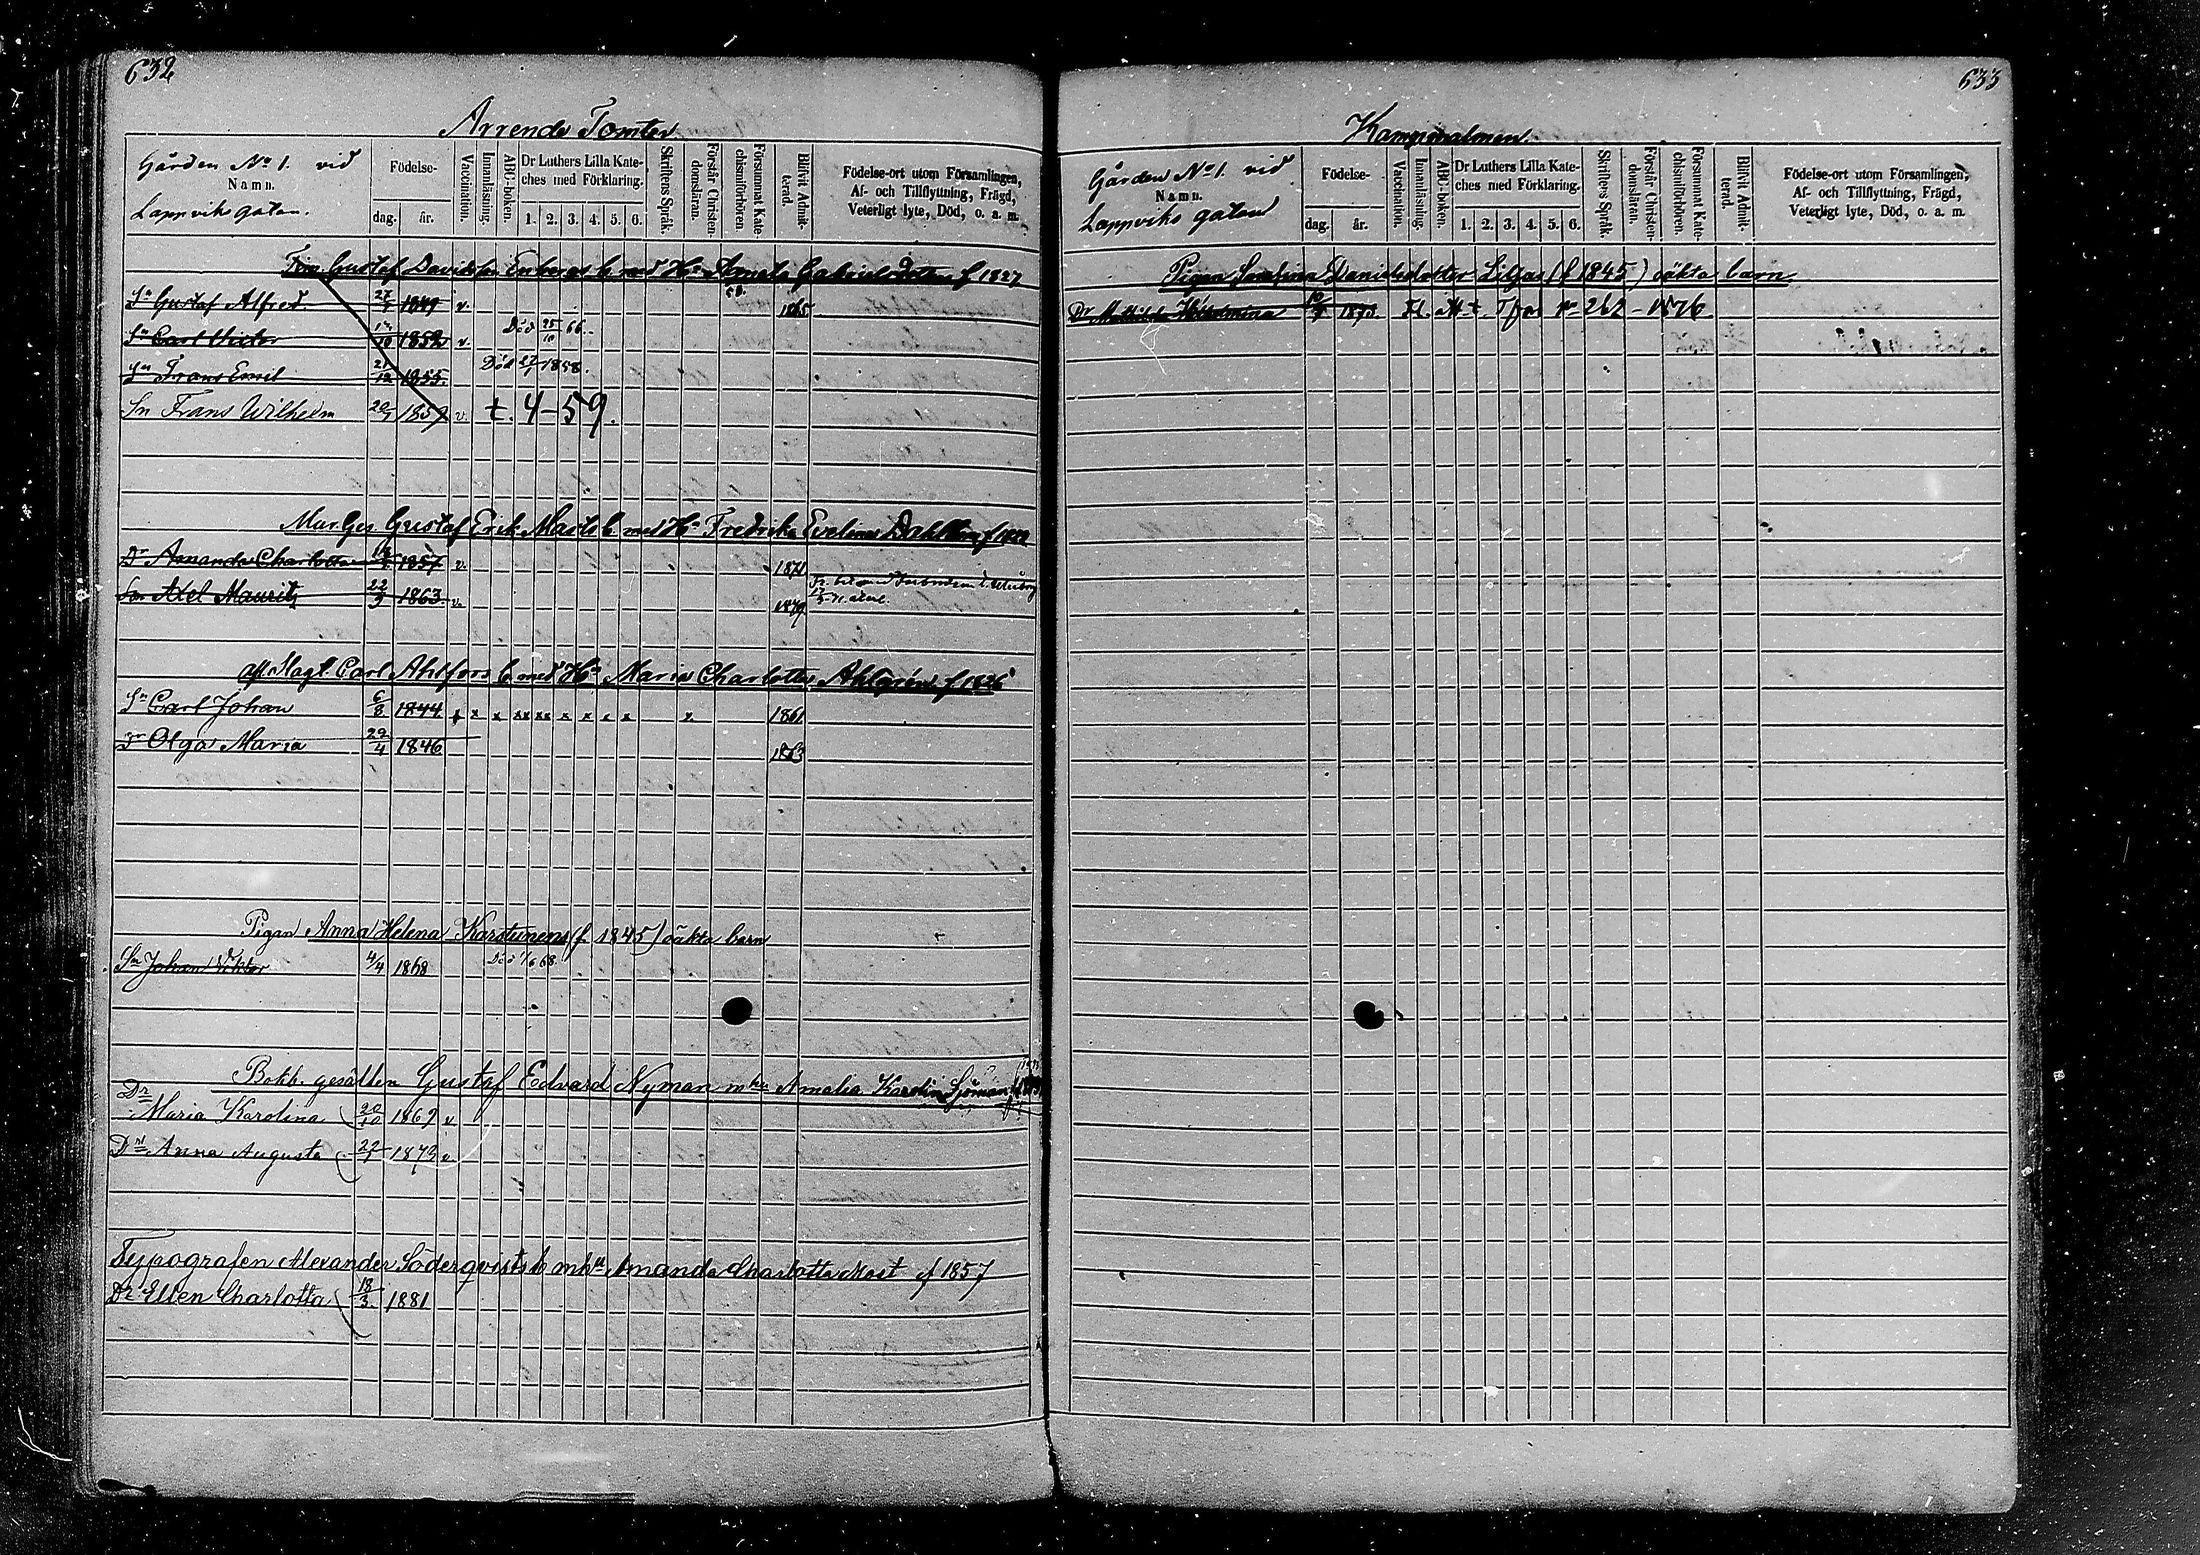 632
Arrende Tomter
Gården No 1. vid
Namn.
Lappviks gatan.
Födelse-
dag. år.
Vaccination.
Innanläsning.
ABC-boken.
Dr Luthers Lilla Kate-
ches med Förklaring.
1. 2. 3. 4. 5. 6.
Skriftens Språk.
Förstår Christen-
domsläran.
Försummat Kate-
chismiförhören.
Blifvit Admit-
terad.
Födelse-ort utom Församlingen,
Af- och Tillflyttning, Frägd,
Veterligt lyte, Död, o. a. m.
Gustaf Davidsson Enbergs b med Hu Amalia Gabrielsdotter f 1827
Sn Gustaf Alfred. 27/7 1849 v. 1865
Sn Carl Victor 1852 v Död 25/10 66.
Sn Frans Emil 21/12 1855. Död 27/7 1858.
Sn Frans Wilhelm 1857 v. t. 4-59.
Mur Ges Gustaf Erik Masts b med Hu Fredrika Evelina
Dr Amanda Charlotta 1857 v. 1871
Sn Axel Mauritz 22/9 1863 v. 1879
Carl Ahlfors b med Hu Maria Charlotta Ahlgrén f 1826
Sn Carl Johan 6/8 1844 x x x xx xx x x x x x 1861
Dr Olga Maria 29/4 1846 1863
Pigan Anna Helena Karstunens (f. 1845) oäkta barn
Sn Johan Viktor 4/4 1868 Död 1/6 68.
Bokb. gesällen Gustaf Edvard Nyman m hu Amalia Karolin Sjöman
Dr
Maria Karolina 20/10 1869 v
Dr Anna Augusta 22/7 1873 v.
Typografen Alexander Söderqvists b m hu Amanda Charlotta Mast f 1857
Dr Ellen Charlotta 18/3 1881
633
Kampmalmen.
Gården No 1. vid
Namn.
Lappviks gatan
Födelse-
dag. år.
Vaccination.
Innanläsning.
ABC-boken.
Dr Luthers Lilla Kate-
ches med Förklaring.
1. 2. 3. 4. 5. 6.
Skriftens Språk.
Förstår Christen-
domsläran.
Försummat Kate-
chismiförhören.
Blifvit Admit-
terad.
Födelse-ort utom Församlingen,
Af- och Tillflyttning, Frägd,
Veterligt lyte, Död, o. a. m.
Pigan Serafina Danielsdotter Liljas (f 1845) oäkta barn
Dr Mathilda Wilhelmina 1873. 262 - 1876